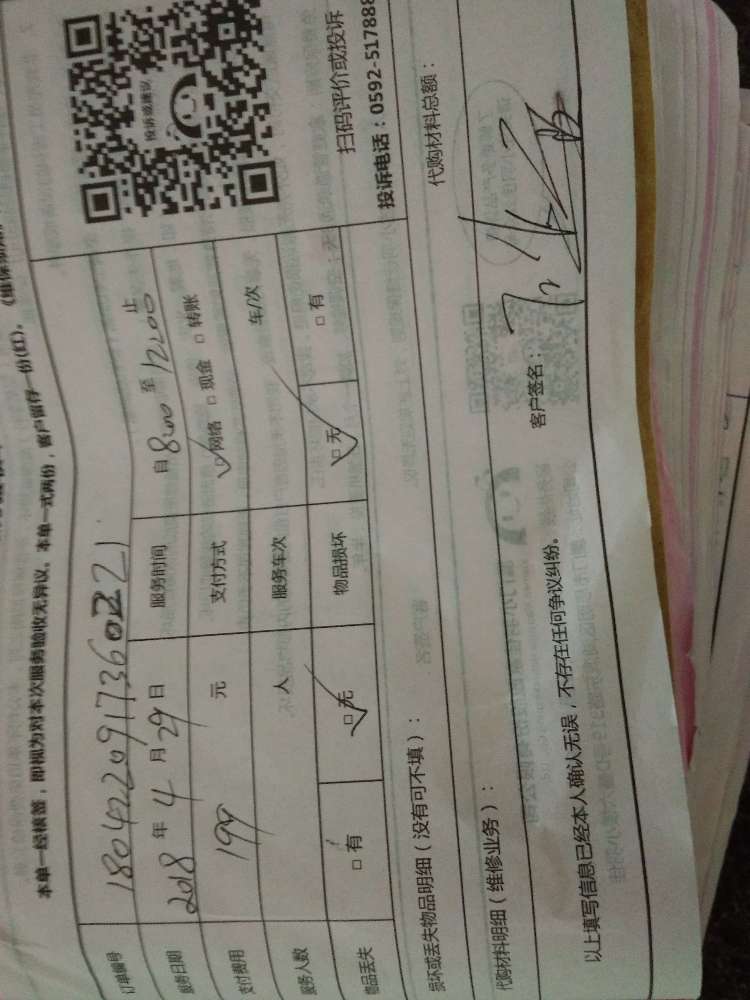 本单一经核签，即视为对本次服务验收无异议。本单一式两份，客户留存一份(红)。
投诉或建议
扫码评价或投诉
投诉电话：0592-517888
订单编号
服务日期 2018 年 4 月 29 日 服务时间 自 8:00 至 12:00 止
支付费用 199 元 支付方式 ☑网络 □现金 □转账
服务人数 人 服务车次 车/次
物品丢失 □有 ☑无 物品损坏 ☑无 □有
损坏或丢失物品明细（没有可不填）：
代购材料明细（维修业务）： 代购材料总额：
以上填写信息已经本人确认无误，不存在任何争议纠纷。 客户签名：